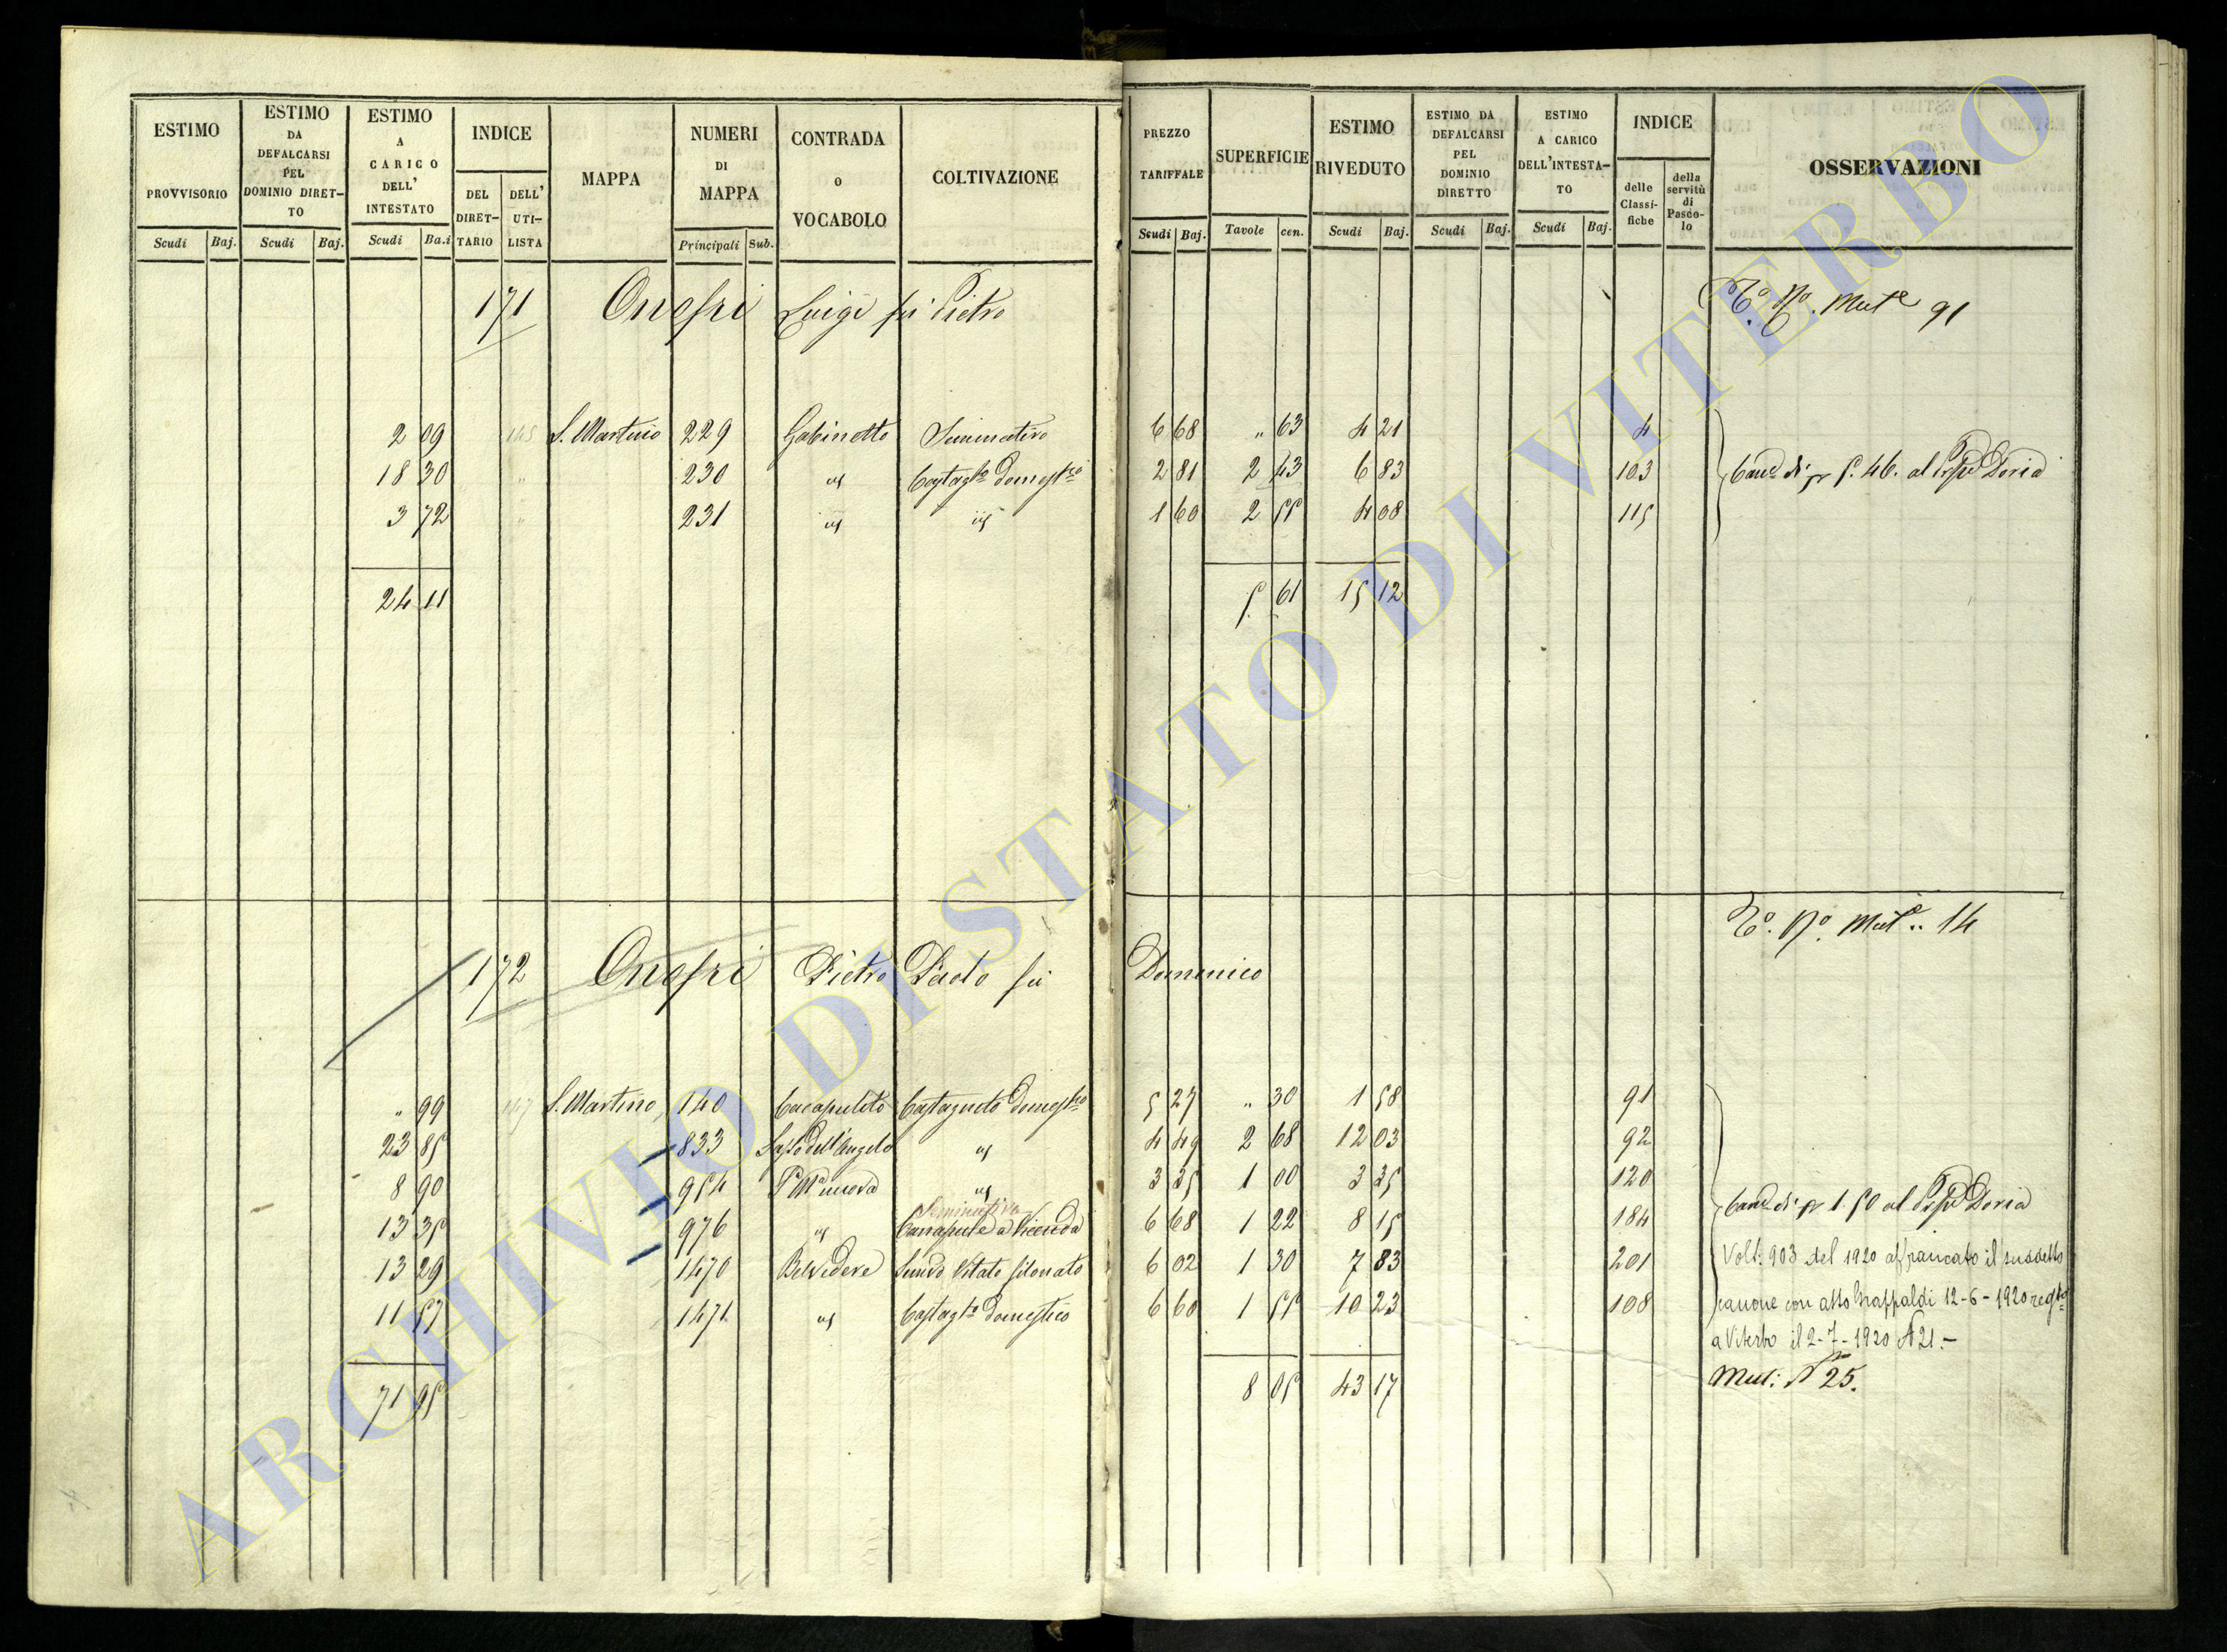 ESTIMO PROVVISORIO Scudi Baj.
ESTIMO DA DEFALCARSI PEL DOMINIO DIRETTO Scudi Baj.
ESTIMO A CARICO DELL' INTESTATO Scudi Ba.i
INDICE DEL DIRETTARIO DELL' UTILISTA
MAPPA
NUMERI DI MAPPA Principali Sub.
CONTRADA O VOCABOLO
COLTIVAZIONE
PREZZO TARIFFALE Scudi Baj.
SUPERFICIE Tavole cen.
ESTIMO RIVEDUTO Scudi Baj.
ESTIMO DA DEFALCARSI PEL DOMINIO DIRETTO Scudi Baj.
ESTIMO A CARICO DELL'INTESTATO Scudi Baj.
INDICE delle Classifiche della servitù di Pascolo
OSSERVAZIONI
171 Onofri Luigi fu Pietro Mut.e 91
2 09 145 S. Martino 229 Gabinetto Seminativo 6 68 " 63 4 21 4
18 30 " 230 id Castag.to domest.co 2 81 2 43 6 83 103 Can.e di 46. al Doria
3 72 " 231 id id 1 60 2 55 4 08 115
24 11 5 61 15 12
N.o Mut.e 14
172 Onofri Pietro Paolo fu Domenico
" 99 147 S. Martino 140 Castagneto domest.co 5 27 " 30 1 58 91
23 85 833 Sasso dell'Angelo id 4 49 2 68 12 03 92
8 90 954 nuova id 3 35 1 00 3 35 120
Seminativo
13 35 976 id Canapule a Vicenda 6 68 1 22 8 15 184 Can.e di 1.50 al Doria
13 29 1470 Belvedere Vitato filonato 6 02 1 30 7 83 201 Volt: 903 del 1920 affrancato il suddetto
11 57 1471 id Castag.to domestico 6 60 1 55 10 23 108 canone con atto 12-6-1920
a Viterbo il 2-7-1920 N 21.-
71 95 8 05 43 17 Mut: N 25.
ARCHIVIO DI STATO DI VITERBO